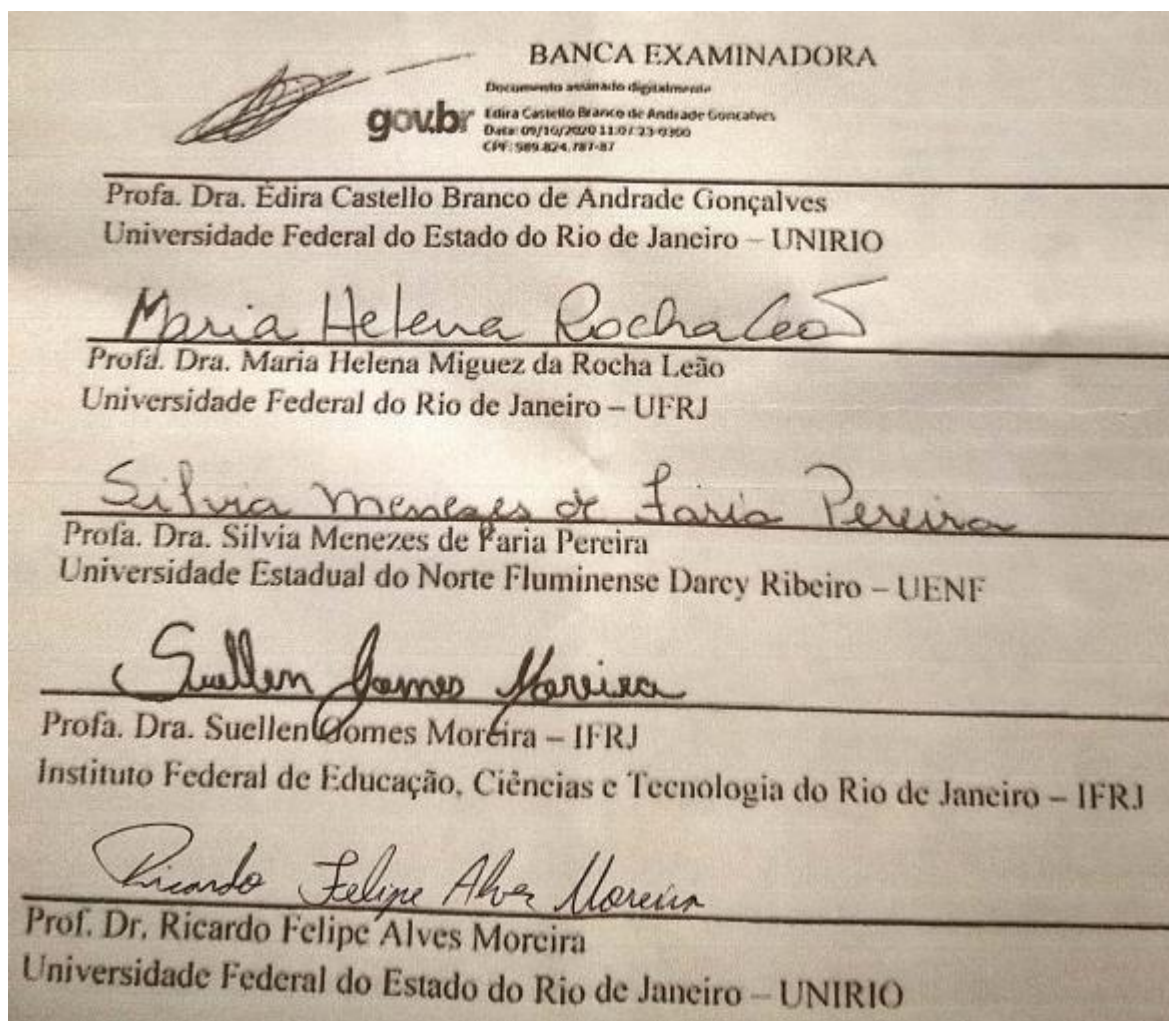 BANCA EXAMINADORA
Documento assinado digitalmente
gov.br
Edira Castello Branco de Andrade Goncalves
Data: 09/10/2020 11:07:23-0300
CPF: 989.824.787-87
Profa. Dra. Édira Castello Branco de Andrade Gonçalves
Universidade Federal do Estado do Rio de Janeiro – UNIRIO
Maria Helena Rocha Leão
Profa. Dra. Maria Helena Miguez da Rocha Leão
Universidade Federal do Rio de Janeiro – UFRJ
Silvia Menezes de Faria Pereira
Profa. Dra. Silvia Menezes de Faria Pereira
Universidade Estadual do Norte Fluminense Darcy Ribeiro – UENF
Suellen Gomes Moreira
Profa. Dra. Suellen Gomes Moreira – IFRJ
Instituto Federal de Educação, Ciências e Tecnologia do Rio de Janeiro – IFRJ
Ricardo Felipe Alves Moreira
Prof. Dr. Ricardo Felipe Alves Moreira
Universidade Federal do Estado do Rio de Janeiro – UNIRIO